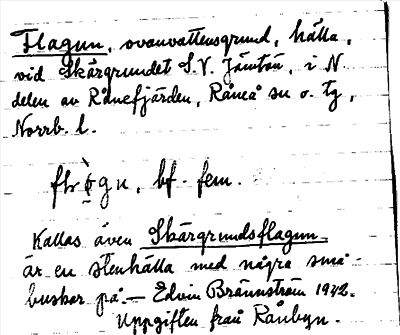 Flagun, ovanvattensgrund, hälla,
vid Skärgrundet S.V. Jämtön, i N
delen av Rånefjärden, Råneå sn o. tg,
Norrb. l.
bf. fem.
Kallas även Skärgrundsflagun
är en stenhälla med några små
buskar på. — Edvin Brännström 1942.
Uppgiften från Rånbyn.